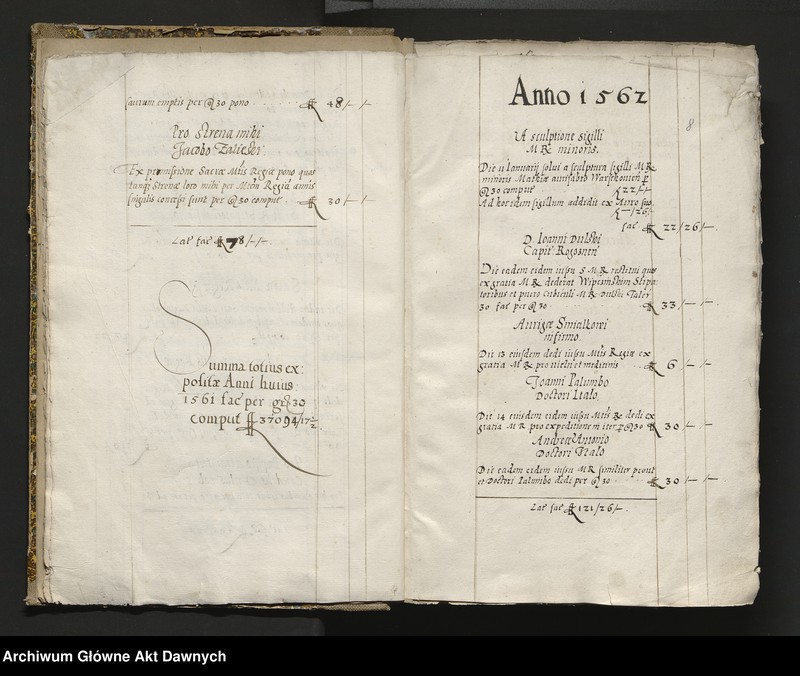 saurum emptis per gr 30 pono fl 48/-/-
Pro strena mihi
Jacobo Zalieski.
Ex promissione Sacrae Mtis Regiae pono quos
tanq Strenae loco mihi per Mtem Regiā annis
singulis concessi sunt per gr 30 comput fl 30/-/-
Lat' fac' fl 78/-/-
Summa totius ex:
positae Anni huius
1561 fac' per gr 30
comput fl 37094/17 -/2
Anno 1562
8
A sculptione sigilli
M R minoris.
Die 11 Januarij solui a sculptura sigilli M R
minoris Mathiae aurifabro
gr 30 comput fl 22/-/-
Ad hoc idem sigillum addedit ex Auro suo
fl -/26/-
fac' fl 22/26/-
D. Ioanni Dulski
Capit' Rogosnen'
Die eadem eidem iussu S M R restitui quos
ex gratia M R dederat Stipa
toribus et puero cubiculi M R Dulski Taler
30 fac' per gr 30 fl 33/-/-
Aurigae Smialkowi
infirmo.
Die 13 eiusdem dedi iussu Mtis Regiae ex
gratia M R pro victu et medicinis fl 6/-/-
Joanni Palumbo
Doctori Italo.
Die 14 eiusdem eidem iussu Mtis R dedi ex
gratia M R pro expeditione in iter p gr 30 fl 30/-/-
Andreae Antonio
Doctori Italo
Die eadem eidem iussu M R similiter prout
et Doctori Palumbo dedi per gr 30 fl 30/-/-
Lat' fac' fl 121/26/-
Archiwum Główne Akt Dawnych